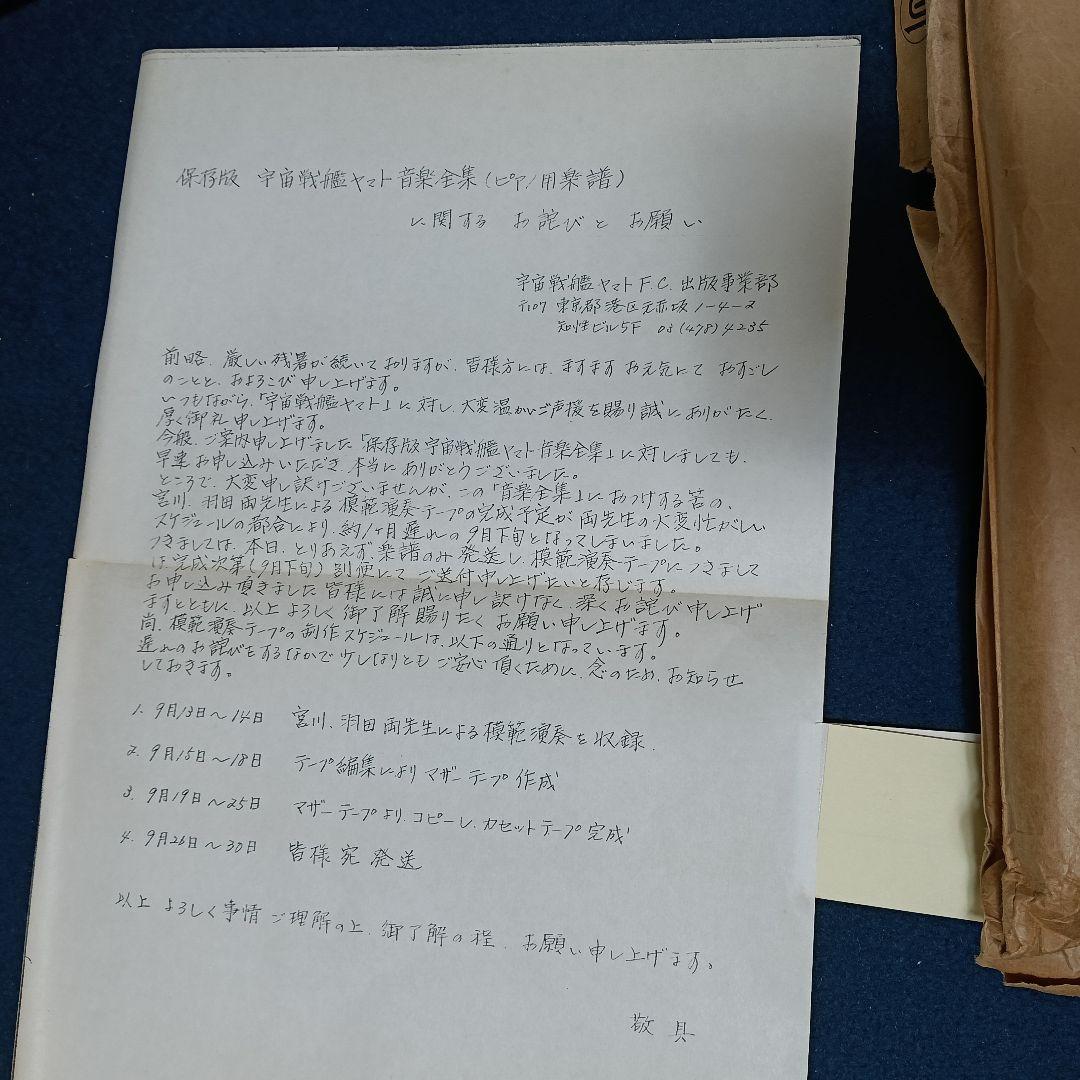 保存版 宇宙戦艦ヤマト音楽全集(ピアノ用楽譜)
に関する お詫びと お願い
宇宙戦艦ヤマトF.C.出版事業部
〒107 東京都港区元赤坂1-4-2
知性ビル5F 03(478)4235
前略、厳しい残暑が続いておりますが、皆様方には、ますます お元気にて おすごし
のことと、およろこび申し上げます。
いつもながら、「宇宙戦艦ヤマト」に対し、大変温かいご声援を賜り誠にありがたく、
厚く御礼申し上げます。
今般、ご案内申し上げました「保存版宇宙戦艦ヤマト音楽全集」に対しましても、
早速お申し込みいただき、本当にありがとうございました。
ところで、大変申し訳ございませんが、この「音楽全集」におつけする筈の、
宮川、羽田両先生による模範演奏テープの完成予定が両先生の大変忙がしい
スケジュールの都合により、約1ヶ月遅れの9月下旬となってしまいました。
つきましては、本日、とりあえず、楽譜のみ発送し、模範演奏テープにつきまして
は完成次第(9月下旬)別便にてご送付申し上げたいと存じます。
お申し込み頂きました皆様には誠に申し訳けなく、深くお詫び申し上げ
ますとともに、以上よろしく御了解賜りたくお願い申し上げます。
尚、模範演奏テープの制作スケジュールは、以下の通りとなっています。
遅れのお詫びをするなかで少しなりともご安心頂くために、念のため、お知らせ
しておきます。
1. 9月13日〜14日 宮川、羽田両先生による模範演奏を収録.
2. 9月15日〜18日 テープ編集によりマザーテープ作成
3. 9月19日〜25日 マザーテープより、コピーし、カセットテープ完成
4. 9月26日〜30日 皆様宛発送
以上 よろしく事情ご理解の上、御了解の程、お願い申し上げます。
敬具